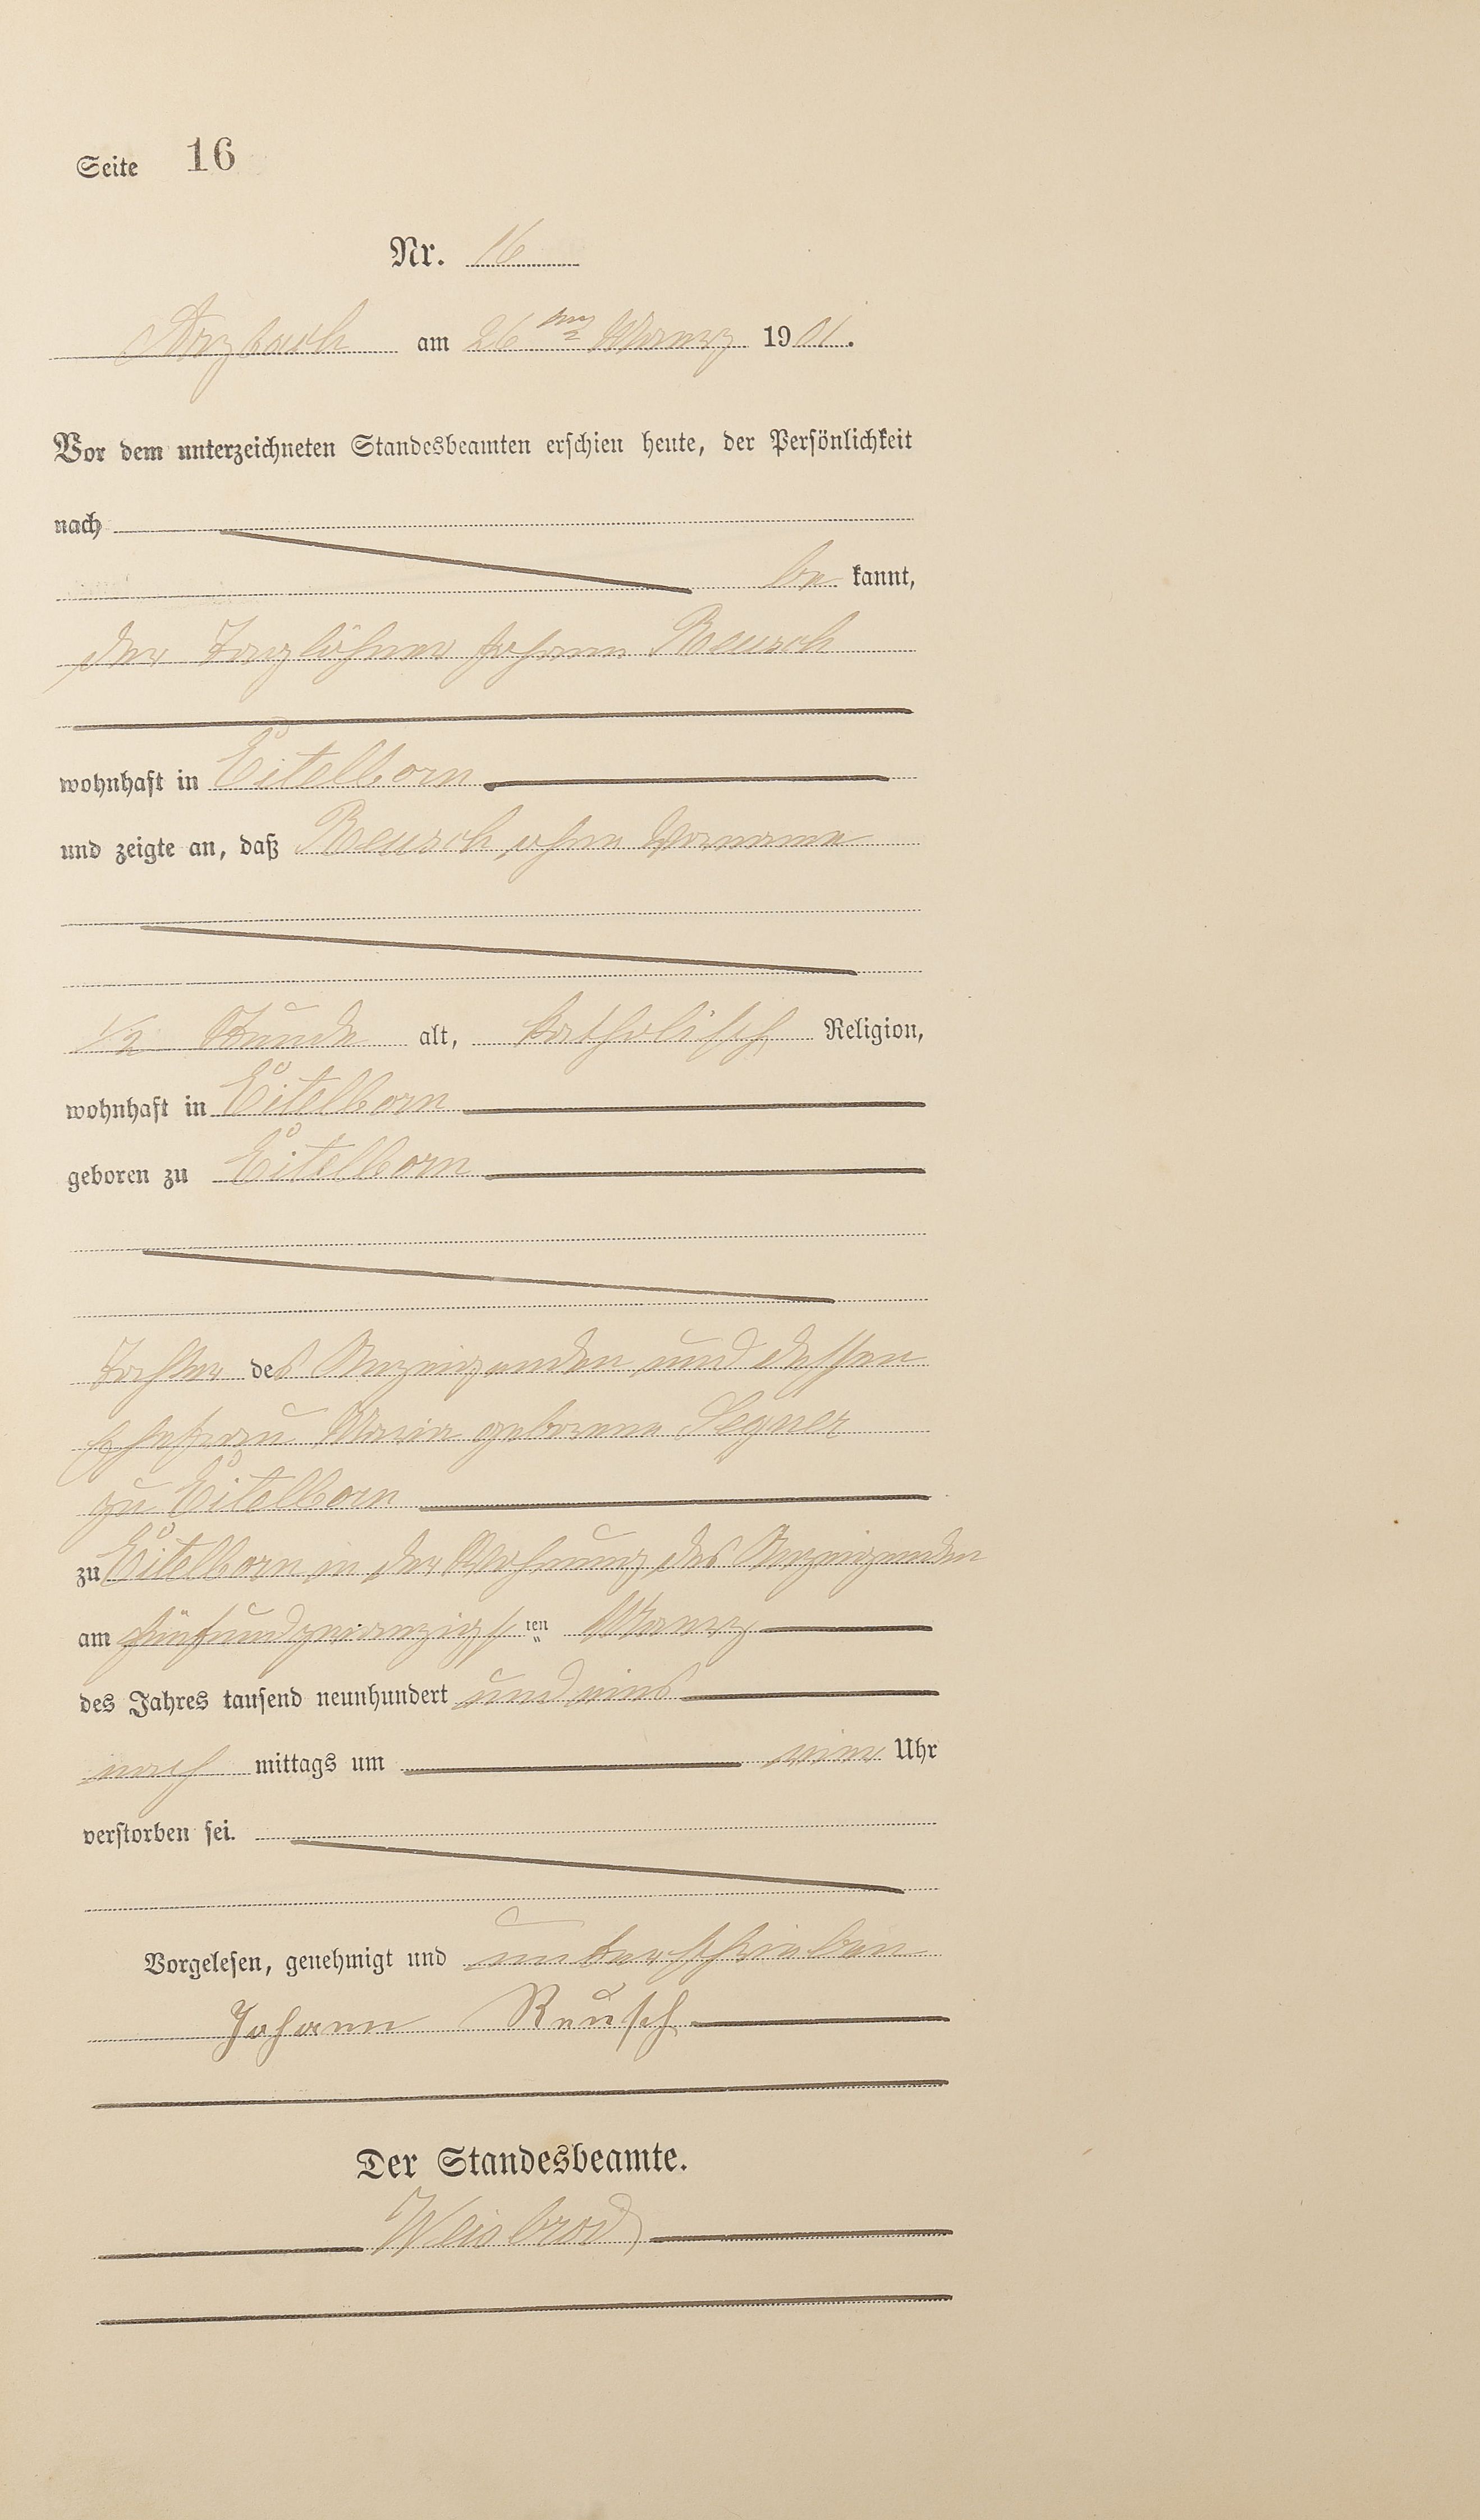 Seite 16
Nr. 16
Arzbach am 26ten Maerz 1901.
Vor dem unterzeichneten Standesbeamten erschien heute, der Persönlichkeit
nach
be kannt,
der Taglöhner Johann Reusch
wohnhaft in Eitelborn
und zeigte an, daß Reusch, ohne Vorname
1/2 Stunde alt, katholisch Religion,
wohnhaft in Eitelborn
geboren zu Eitelborn
Tochter des Anzeigenden und dessen
Ehefrau Maria geborene Segner
zu Eitelborn
zu Eitelborn in der Wohnung des Anzeigenden
am fünfundzwanzigs ten Maerz
des Jahres tausend neunhundert und eins
nach mittags um Uhr
verstorben sei.
Vorgelesen, genehmigt und unterschrieben
Johann Reusch
Der Standesbeamte.
Weisbrod